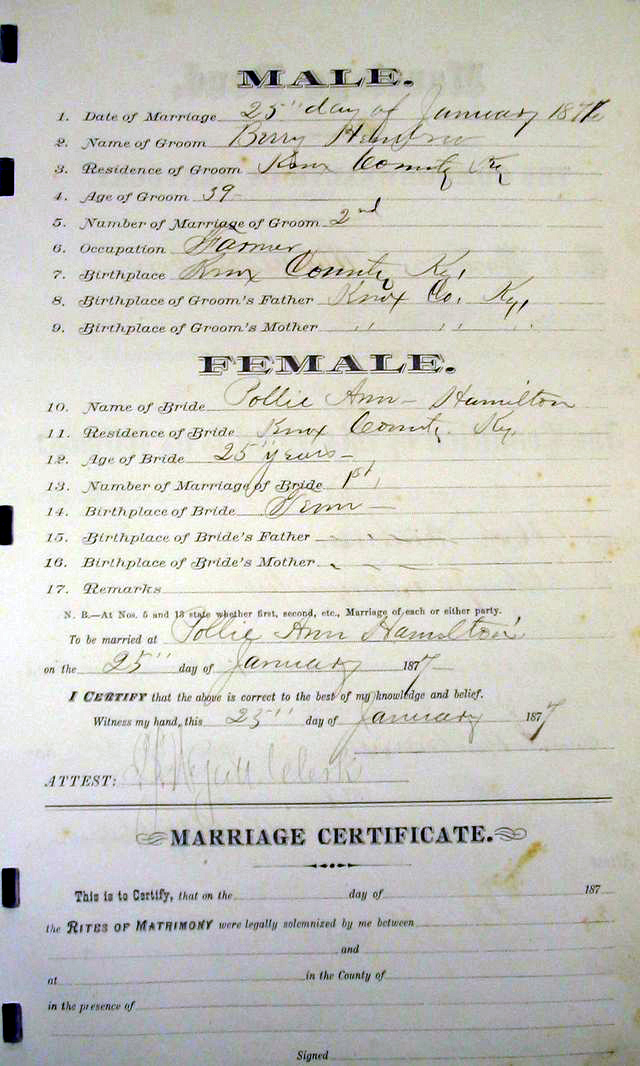 MALE.
1. Date of Marriage 25" day of January 1877
2. Name of Groom Berry
3. Residence of Groom Knox County Ky
4. Age of Groom 39
5. Number of Marriage of Groom 2nd
6. Occupation Farmer
7. Birthplace Knox County Ky,
8. Birthplace of Groom's Father Knox Co, Ky,
9. Birthplace of Groom's Mother " " "
FEMALE.
10. Name of Bride Pollie Ann Hamilton
11. Residence of Bride Knox County Ky,
12. Age of Bride 25" years
13. Number of Marriage of Bride 1st,
14. Birthplace of Bride Tenn
15. Birthplace of Bride's Father
16. Birthplace of Bride's Mother
17. Remarks
N. B.—At Nos. 5 and 13 state whether first, second, etc., Marriage of each or either party.
To be married at Pollie Ann Hamilton's
on the 25" day of January 1877
I CERTIFY that the above is correct to the best of my knowledge and belief.
Witness my hand, this 25" day of January 1877
ATTEST: Clerk
MARRIAGE CERTIFICATE.
This is to Certify, that on the day of 187
the RITES OF MATRIMONY were legally solemnized by me between
and
at in the County of
in the presence of
Signed